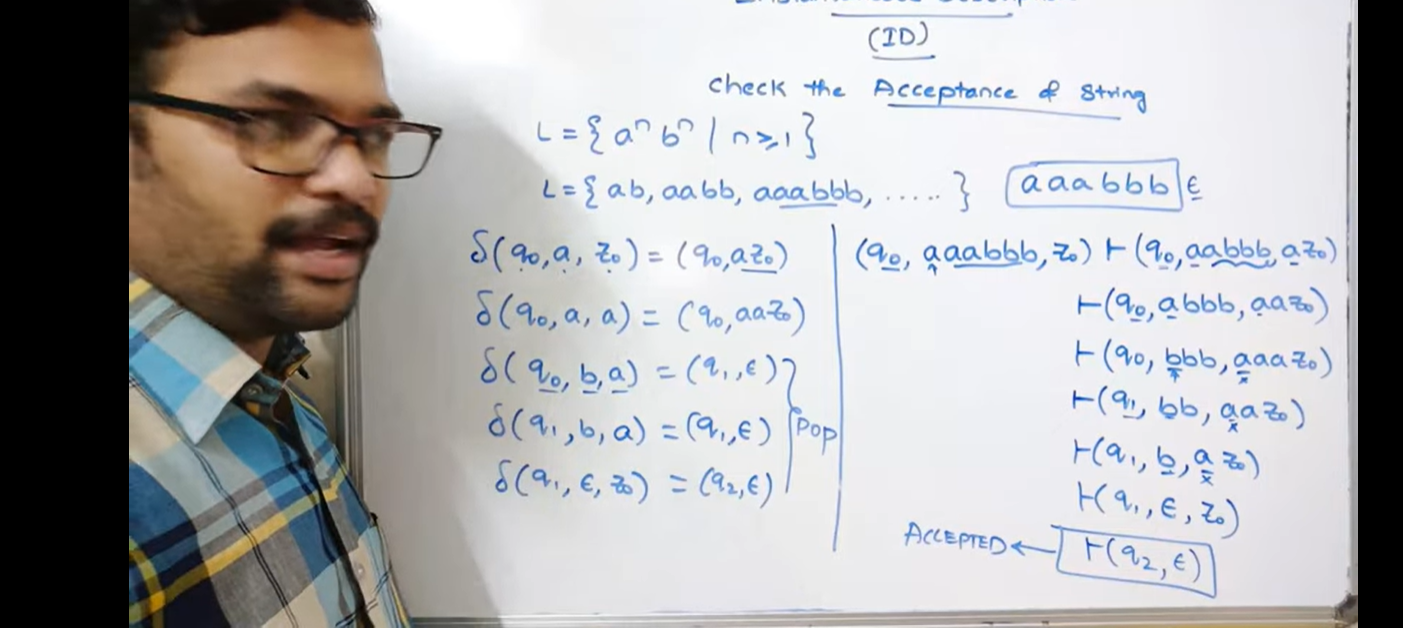 (ID)
Check the Acceptance of String
L = { aⁿ bⁿ | n≥1 }
L = { ab, aabb, aaabbb, ..... } aaabbb ε
δ(q₀, a, z₀) = (q₀, az₀)
δ(q₀, a, a) = (q₀, aaz₀)
δ(q₀, b, a) = (q₁, ε)
δ(q₁, b, a) = (q₁, ε)
δ(q₁, ε, z₀) = (q₂, ε)
Pop
(q₀, aaabbb, z₀) ⊢ (q₀, aabbb, az₀)
⊢ (q₀, abbb, aaz₀)
⊢ (q₀, bbb, aaaz₀)
⊢ (q₁, bb, aaz₀)
⊢ (q₁, b, az₀)
⊢ (q₁, ε, z₀)
ACCEPTED ← ⊢ (q₂, ε)